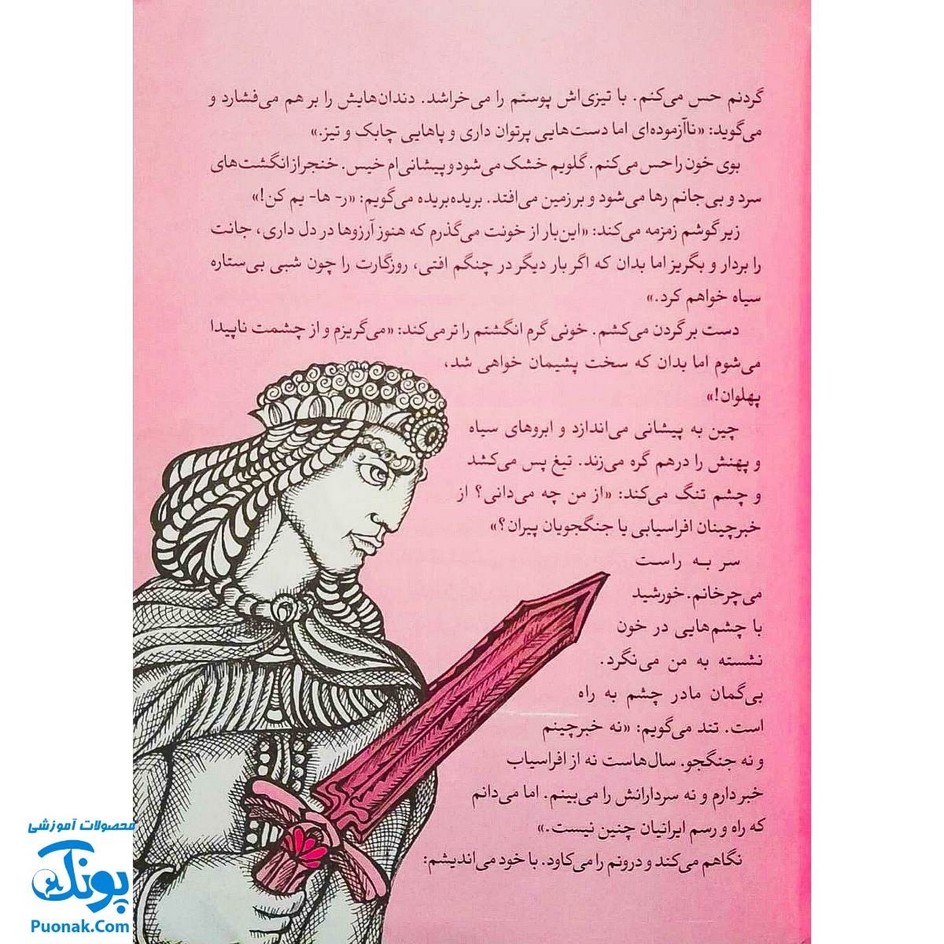 گردنم حس می‌کنم. با تیزی‌اش پوستم را می‌خراشد. دندان‌هایش را بر هم می‌فشارد و
می‌گوید: «ناآزموده‌ای اما دست‌هایی پرتوان داری و پاهایی چابک و تیز.»
بوی خون را حس می‌کنم. گلویم خشک می‌شود و پیشانی‌ام خیس. خنجر از انگشت‌های
سرد و بی‌جانم رها می‌شود و بر زمین می‌افتد. بریده‌بریده می‌گویم: «ر- ها- یم کن!»
زیر گوشم زمزمه می‌کند: «این‌بار از خونت می‌گذرم که هنوز آرزوها در دل داری، جانت
را بردار و بگریز اما بدان که اگر بار دیگر در چنگم افتی، روزگارت را چون شبی بی‌ستاره
سیاه خواهم کرد.»
دست بر گردن می‌کشم. خونی گرم انگشتم را تر می‌کند: «می‌گریزم و از چشمت ناپیدا
می‌شوم اما بدان که سخت پشیمان خواهی شد،
پهلوان!»
چین به پیشانی می‌اندازد و ابروهای سیاه
و پهنش را درهم گره می‌زند. تیغ پس می‌کشد
و چشم تنگ می‌کند: «از من چه می‌دانی؟ از
خبرچینان افراسیابی یا جنگجویان پیران؟»
سر به راست
می‌چرخانم. خورشید
با چشم‌هایی در خون
نشسته به من می‌نگرد.
بی‌گمان مادر چشم به راه
است. تند می‌گویم: «نه خبرچینم
و نه جنگجو. سال‌هاست نه از افراسیاب
خبر دارم و نه سردارانش را می‌بینم. اما می‌دانم
که راه و رسم ایرانیان چنین نیست.»
نگاهم می‌کند و درونم را می‌کاود. با خود می‌اندیشم:
محصولات آموزشی
پونک
Puonak.Com